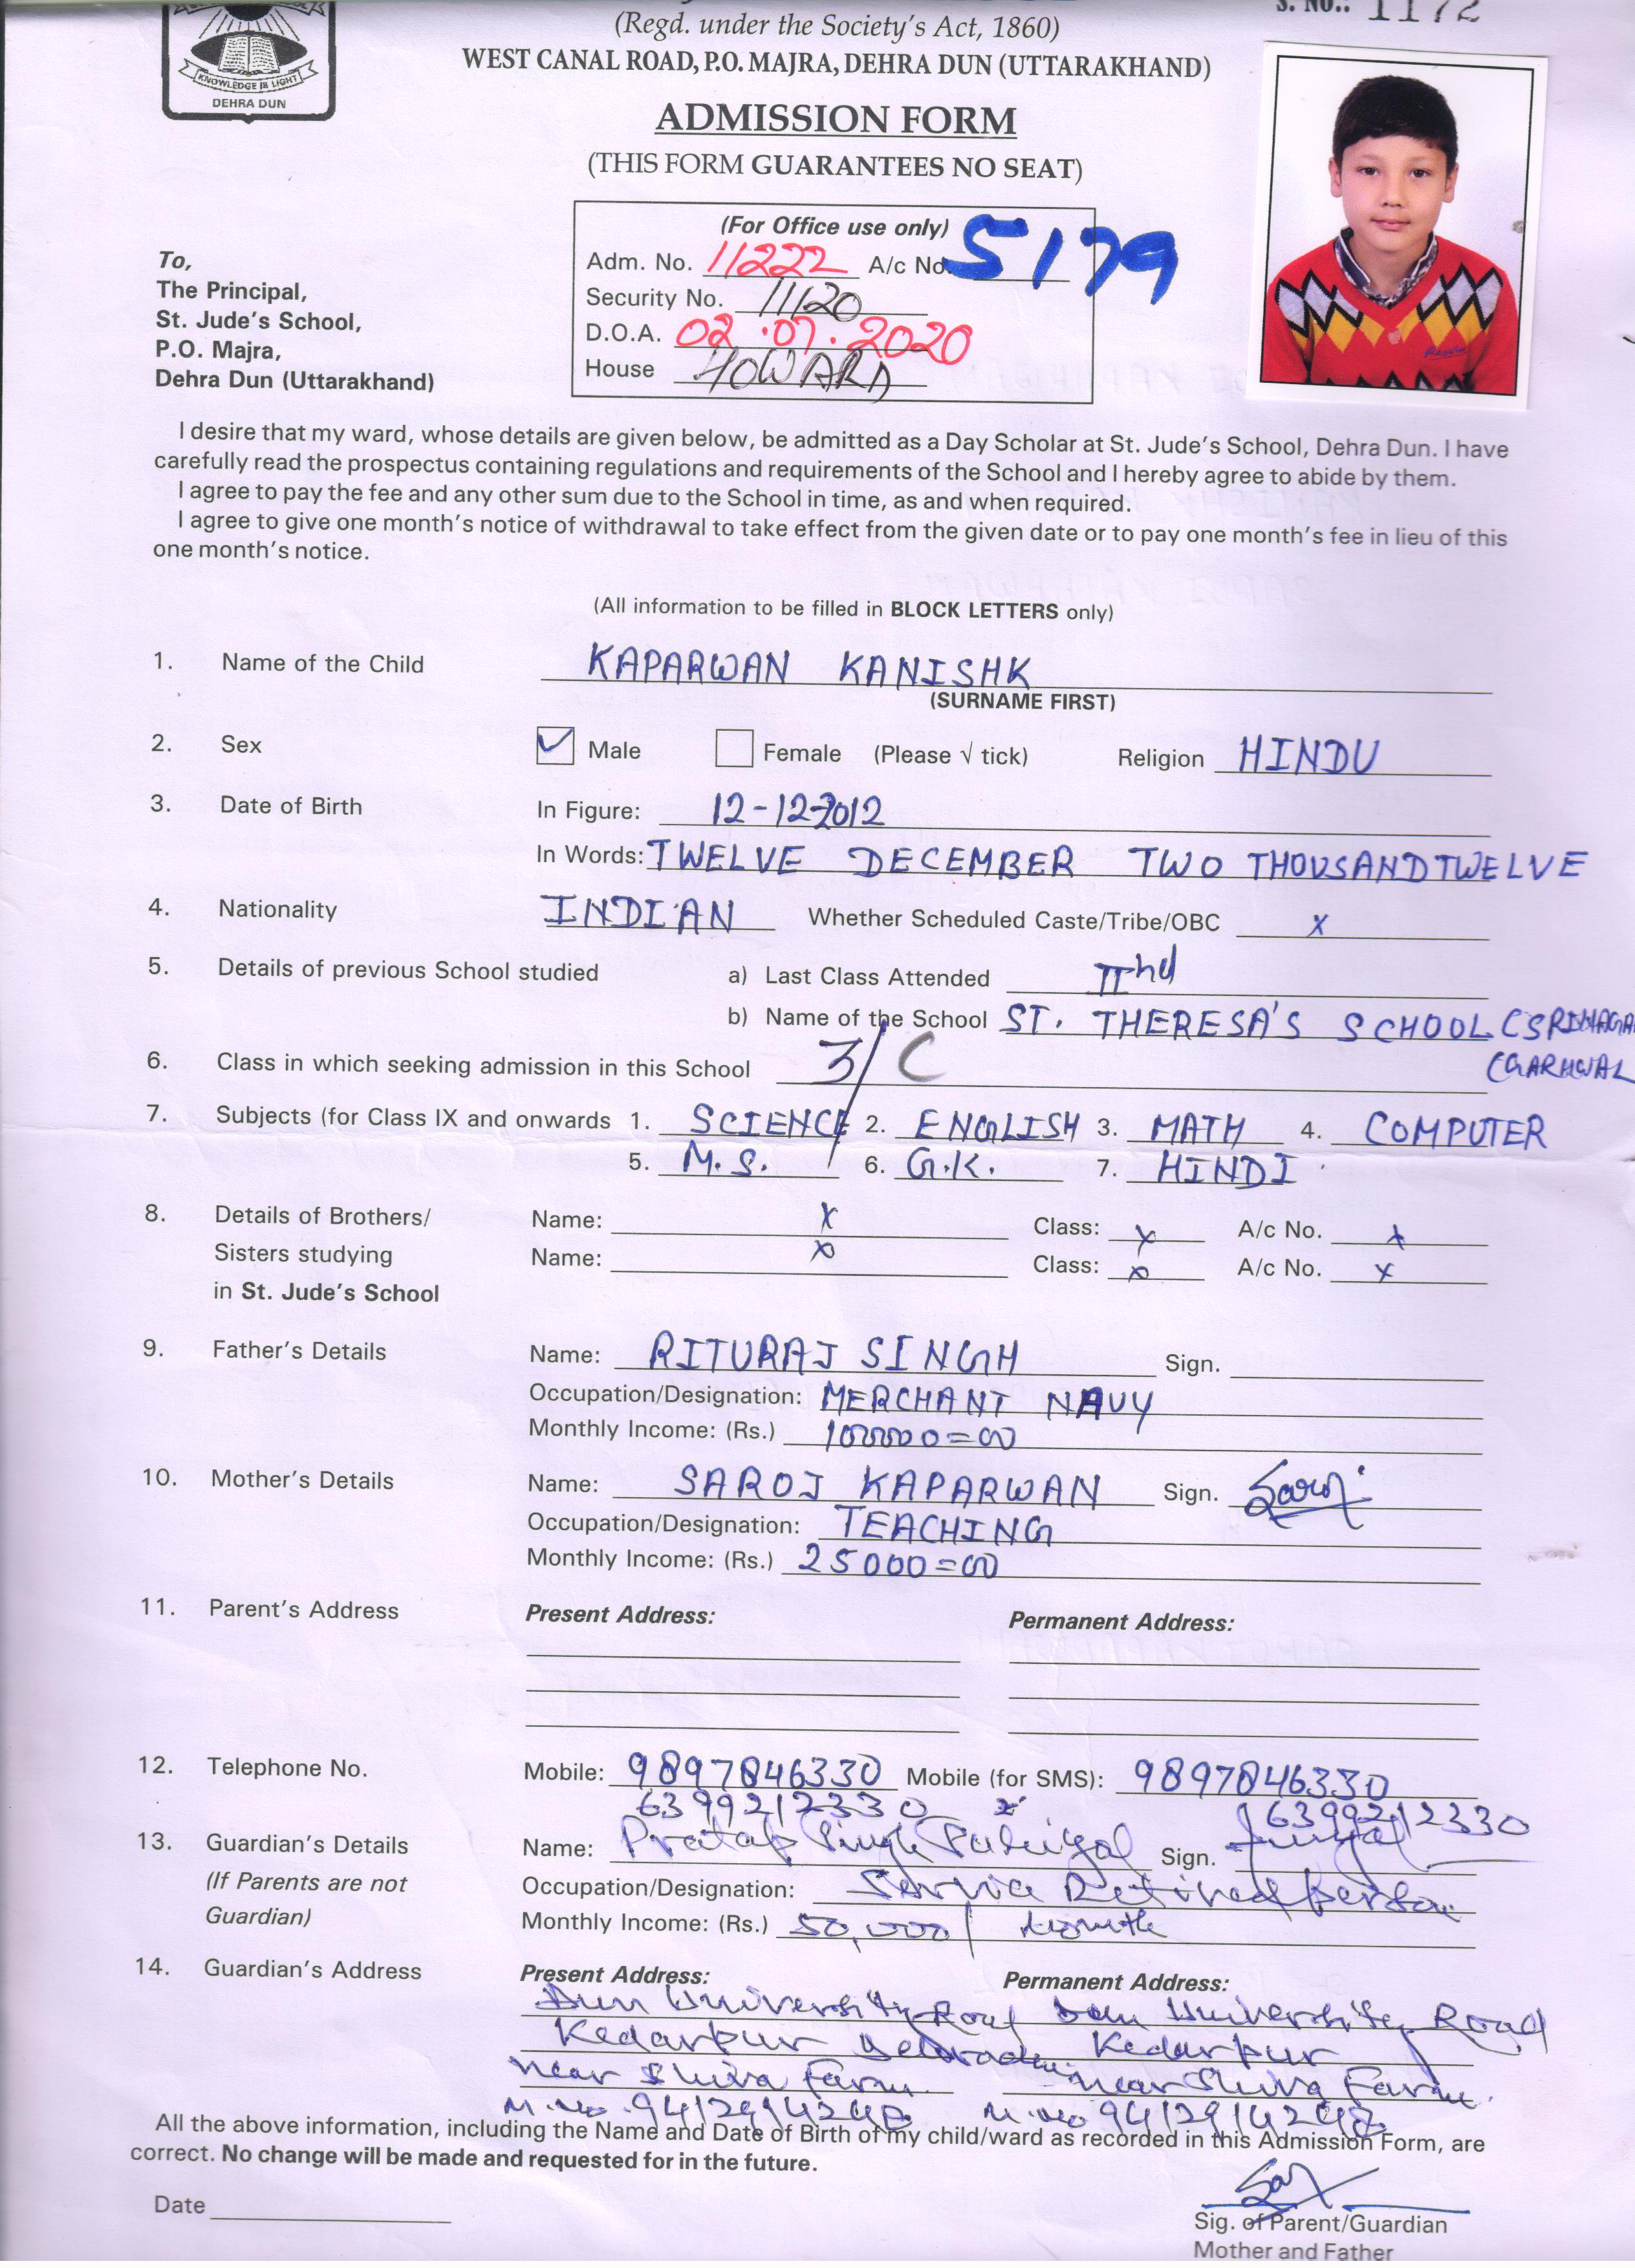 S. NO.: 1172
(Regd. under the Society's Act, 1860)
WEST CANAL ROAD, P.O. MAJRA, DEHRA DUN (UTTARAKHAND)
KNOWLEDGE IS LIGHT
DEHRA DUN
ADMISSION FORM
(THIS FORM GUARANTEES NO SEAT)
(For Office use only)
Adm. No. 11222 A/c No. 5179
Security No. 11120
D.O.A. 02.07.2020
House HOWARD
To,
The Principal,
St. Jude's School,
P.O. Majra,
Dehra Dun (Uttarakhand)
I desire that my ward, whose details are given below, be admitted as a Day Scholar at St. Jude's School, Dehra Dun. I have
carefully read the prospectus containing regulations and requirements of the School and I hereby agree to abide by them.
I agree to pay the fee and any other sum due to the School in time, as and when required.
I agree to give one month's notice of withdrawal to take effect from the given date or to pay one month's fee in lieu of this
one month's notice.
(All information to be filled in BLOCK LETTERS only)
1. Name of the Child KAPARWAN KANISHK
(SURNAME FIRST)
2. Sex ✓ Male Female (Please √ tick) Religion HINDU
3. Date of Birth In Figure: 12-12-2012
In Words: TWELVE DECEMBER TWO THOUSAND TWELVE
4. Nationality INDIAN Whether Scheduled Caste/Tribe/OBC x
5. Details of previous School studied a) Last Class Attended IInd
b) Name of the School ST. THERESA'S SCHOOL
6. Class in which seeking admission in this School 3/C
7. Subjects (for Class IX and onwards 1. SCIENCE 2. ENGLISH 3. MATH 4. COMPUTER
5. M.S. 6. G.K. 7. HINDI
8. Details of Brothers/ Name: x Class: x A/c No. x
Sisters studying Name: x Class: x A/c No. x
in St. Jude's School
9. Father's Details Name: RITURAJ SINGH Sign.
Occupation/Designation: MERCHANT NAVY
Monthly Income: (Rs.) 100000=00
10. Mother's Details Name: SAROJ KAPARWAN Sign. Saroj
Occupation/Designation: TEACHING
Monthly Income: (Rs.) 25000=00
11. Parent's Address Present Address: Permanent Address:
12. Telephone No. Mobile: 9897846330 Mobile (for SMS): 9897846330
6399212330 6399212330
13. Guardian's Details Name: Pratap Singh Sign.
(If Parents are not Occupation/Designation: Service Retired Person
Guardian) Monthly Income: (Rs.) 50,000/ month
14. Guardian's Address Present Address: Permanent Address:
Dun University Road Dun University Road
Kedarpur Dehradun Kedarpur
near Shiva Farm near Shiva Farm
M.No. 9412914248 M.No 9412914248
All the above information, including the Name and Date of Birth of my child/ward as recorded in this Admission Form, are
correct. No change will be made and requested for in the future.
Date
Sig. of Parent/Guardian
Mother and Father